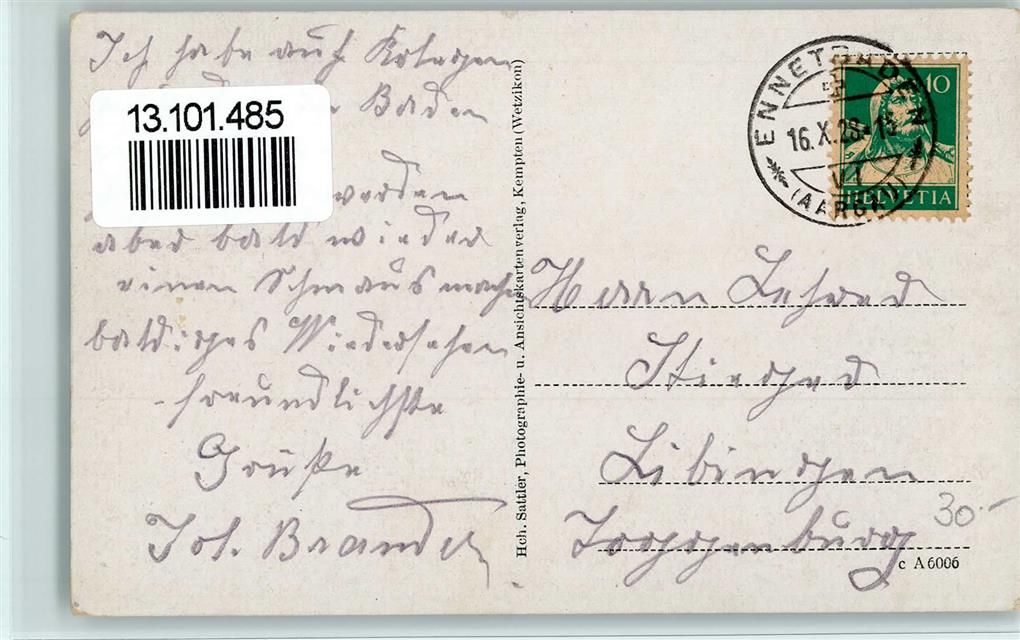 Ich habe auf
Baden
13.101.485
werden
aber bald wieder
einen Schmaus mache
baldiges Wiedersehen
freundlichste
Grüße
Joh. Brander
Hch. Sattler, Photographie- u. Ansichtskartenverlag, Kempten (Wetzikon)
ENNETBADEN
16.X.28.-13
VI
(AARGAU)
10
HELVETIA
Herrn Lehrer
Libingen
Toggenburg
30.-
c A 6006